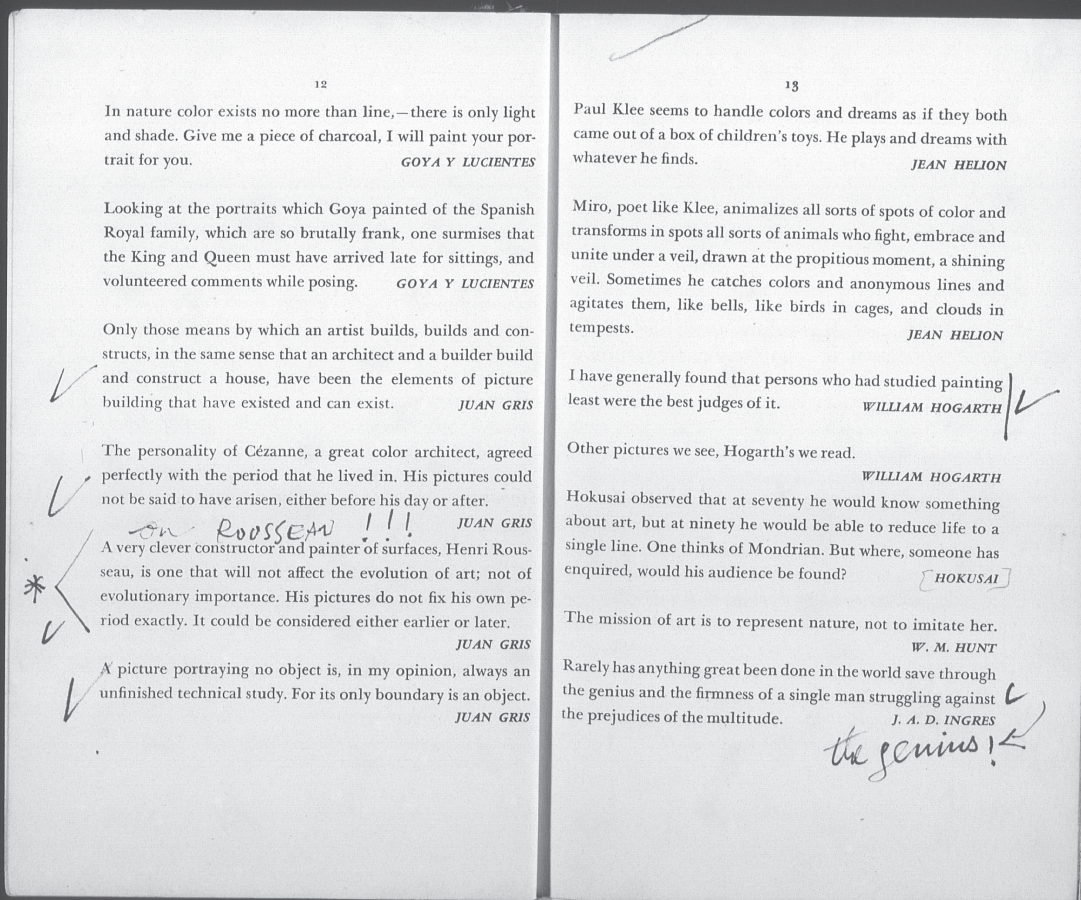 12
In nature color exists no more than line,—there is only light
and shade. Give me a piece of charcoal, I will paint your por-
trait for you. GOYA Y LUCIENTES
Looking at the portraits which Goya painted of the Spanish
Royal family, which are so brutally frank, one surmises that
the King and Queen must have arrived late for sittings, and
volunteered comments while posing. GOYA Y LUCIENTES
Only those means by which an artist builds, builds and con-
structs, in the same sense that an architect and a builder build
and construct a house, have been the elements of picture
building that have existed and can exist. JUAN GRIS
The personality of Cézanne, a great color architect, agreed
perfectly with the period that he lived in. His pictures could
not be said to have arisen, either before his day or after.
JUAN GRIS
on ROUSSEAU !!!
A very clever constructor and painter of surfaces, Henri Rous-
seau, is one that will not affect the evolution of art; not of
evolutionary importance. His pictures do not fix his own pe-
riod exactly. It could be considered either earlier or later.
JUAN GRIS
A picture portraying no object is, in my opinion, always an
unfinished technical study. For its only boundary is an object.
JUAN GRIS
13
Paul Klee seems to handle colors and dreams as if they both
came out of a box of children's toys. He plays and dreams with
whatever he finds. JEAN HELION
Miro, poet like Klee, animalizes all sorts of spots of color and
transforms in spots all sorts of animals who fight, embrace and
unite under a veil, drawn at the propitious moment, a shining
veil. Sometimes he catches colors and anonymous lines and
agitates them, like bells, like birds in cages, and clouds in
tempests. JEAN HELION
I have generally found that persons who had studied painting
least were the best judges of it. WILLIAM HOGARTH
Other pictures we see, Hogarth's we read.
WILLIAM HOGARTH
Hokusai observed that at seventy he would know something
about art, but at ninety he would be able to reduce life to a
single line. One thinks of Mondrian. But where, someone has
enquired, would his audience be found? [HOKUSAI]
The mission of art is to represent nature, not to imitate her.
W. M. HUNT
Rarely has anything great been done in the world save through
the genius and the firmness of a single man struggling against
the prejudices of the multitude. J. A. D. INGRES
the genius!